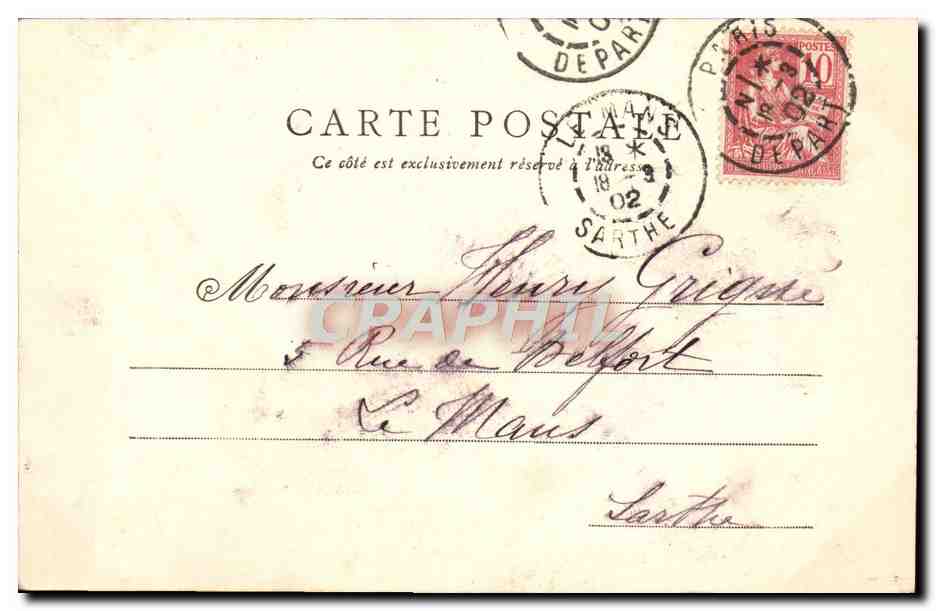 DEPART
PARIS
NI *
18 - 3
02
DEPART
POSTES
10
CARTE POSTALE
Ce côté est exclusivement réservé à l'adresse
LE MANS
18 *
18 - 3
02
SARTHE
Monsieur Henry
5 Rue de Belfort
Le Mans
Sarthe
CRAPHIL